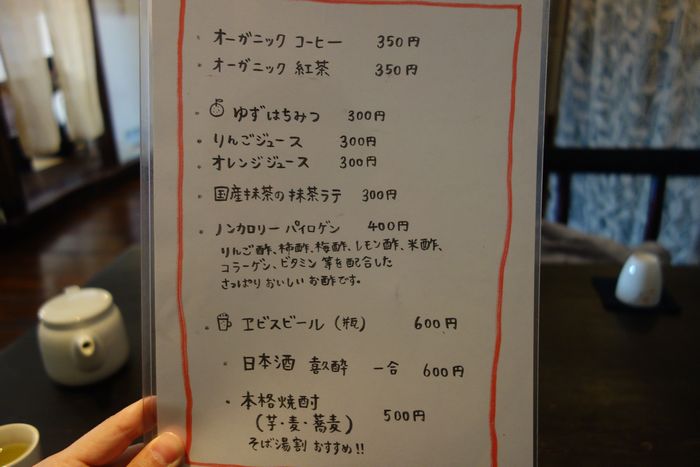 ・オーガニック コーヒー 350円
・オーガニック 紅茶 350円
・ゆずはちみつ 300円
・りんごジュース 300円
・オレンジジュース 300円
・国産抹茶の抹茶ラテ 300円
・ノンカロリー パイロゲン 400円
りんご酢、柿酢、梅酢、レモン酢、米酢、
コラーゲン、ビタミン 等を配合した
さっぱり おいしい お酢です。
・ヱビスビール (瓶) 600円
・日本酒 喜久酔 一合 600円
・本格焼酎
(芋・麦・蕎麦) 500円
そば湯割 おすすめ!!